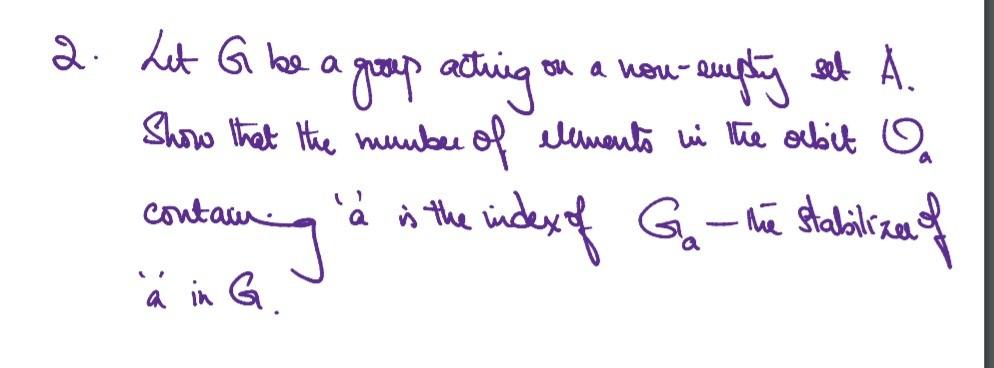 2. Let G be a group acting on a non-empty set A.
Show that the number of elements in the orbit O_a
containing 'a' is the index of G_a – the stabilizer of
'a' in G.